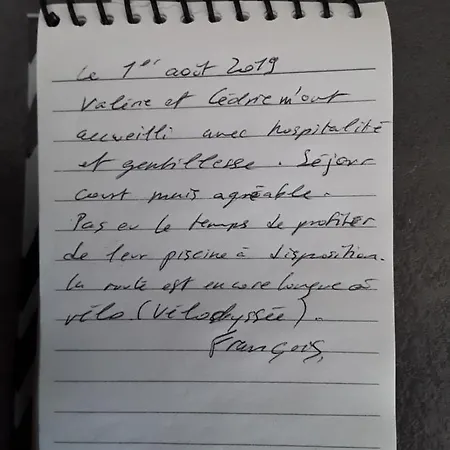 Le 1er août 2019
Valérie et Cédric m'ont
accueilli avec hospitalité
et gentillesse. Séjour
court mais agréable.
Pas eu le temps de profiter
de leur piscine à disposition.
La route est encore longue à
vélo (Vélodyssée).
François,